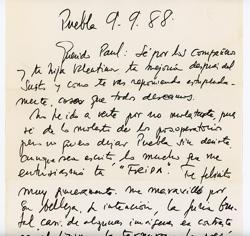 Puebla 9.9.88.
Querido Paul. Sé por los compañeros
y tu hija Valentina tu mejoría después del
susto y como te vas reponiendo
mente, cosa que todos deseamos.
No he ido a verte por no molestarte, pues
sé de lo molesto de los posoperatorios
pero no quiero dejar Puebla sin decirte,
aunque sea escrito, lo mucho que me
entusiasmó tu "FREIDA". Te felicito
muy sinceramente. Me maravilló por
su belleza, la intención, la
tal cari de algunas imágenes en contraste